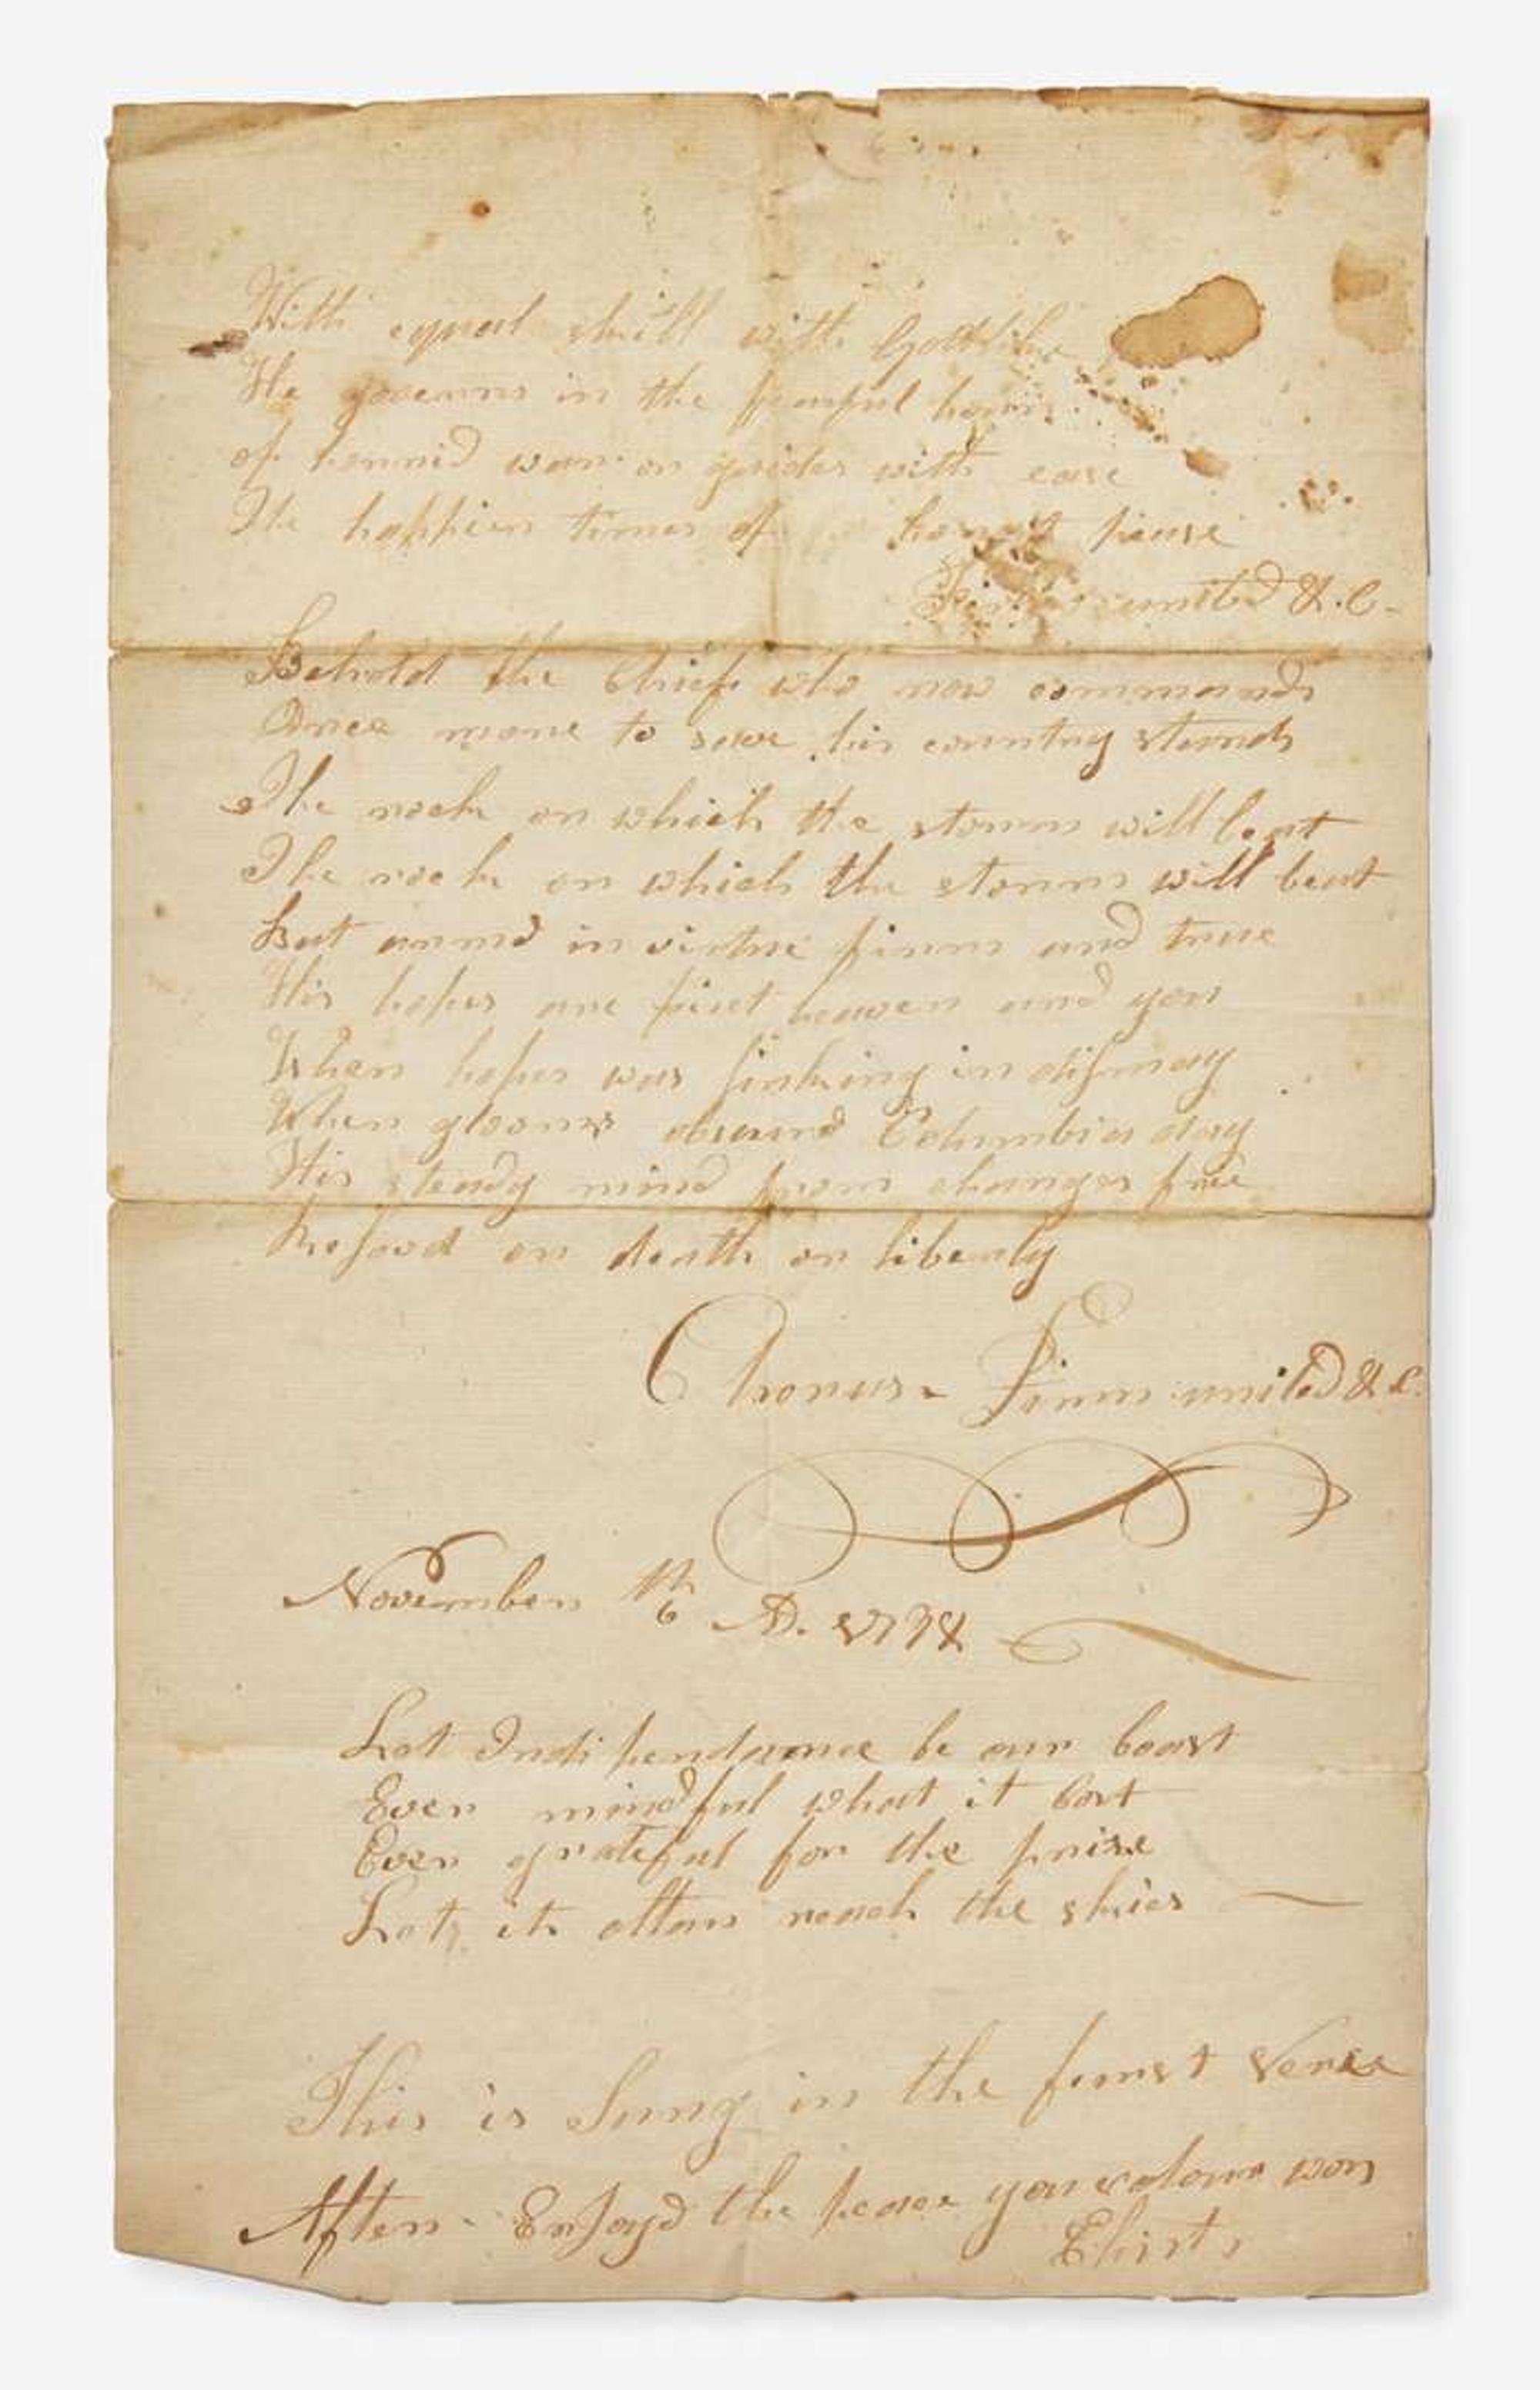 With equal skill with Godlike
He governs in the fearful hour
of horrid war or guides with ease
The happier times of honest peace
Firm united &.C-
Behold the Chief who now commands
Once more to serve his country stands
The rock on which the storm will beat
The rock on which the storm will beat
But armd in virtue firm and true
His hopes are fixt heaven and you
When hopes was sinking in dismay
When glooms obscurd Columbias day
His steady mind from changes free
Resovd on death or liberty
Chorus - Firm united & C.
November 6th AD. 1798
Let Indipendance be our boast
Ever mindful what it Cost
Ever grateful for the prize
Let its altars reach the skies
This is Sung in the furst Verse
After - Enjoyd the peace your valour won